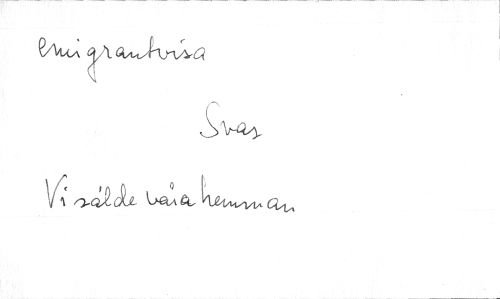 emigrantvisa
Svas
Vi sålde våra hemman